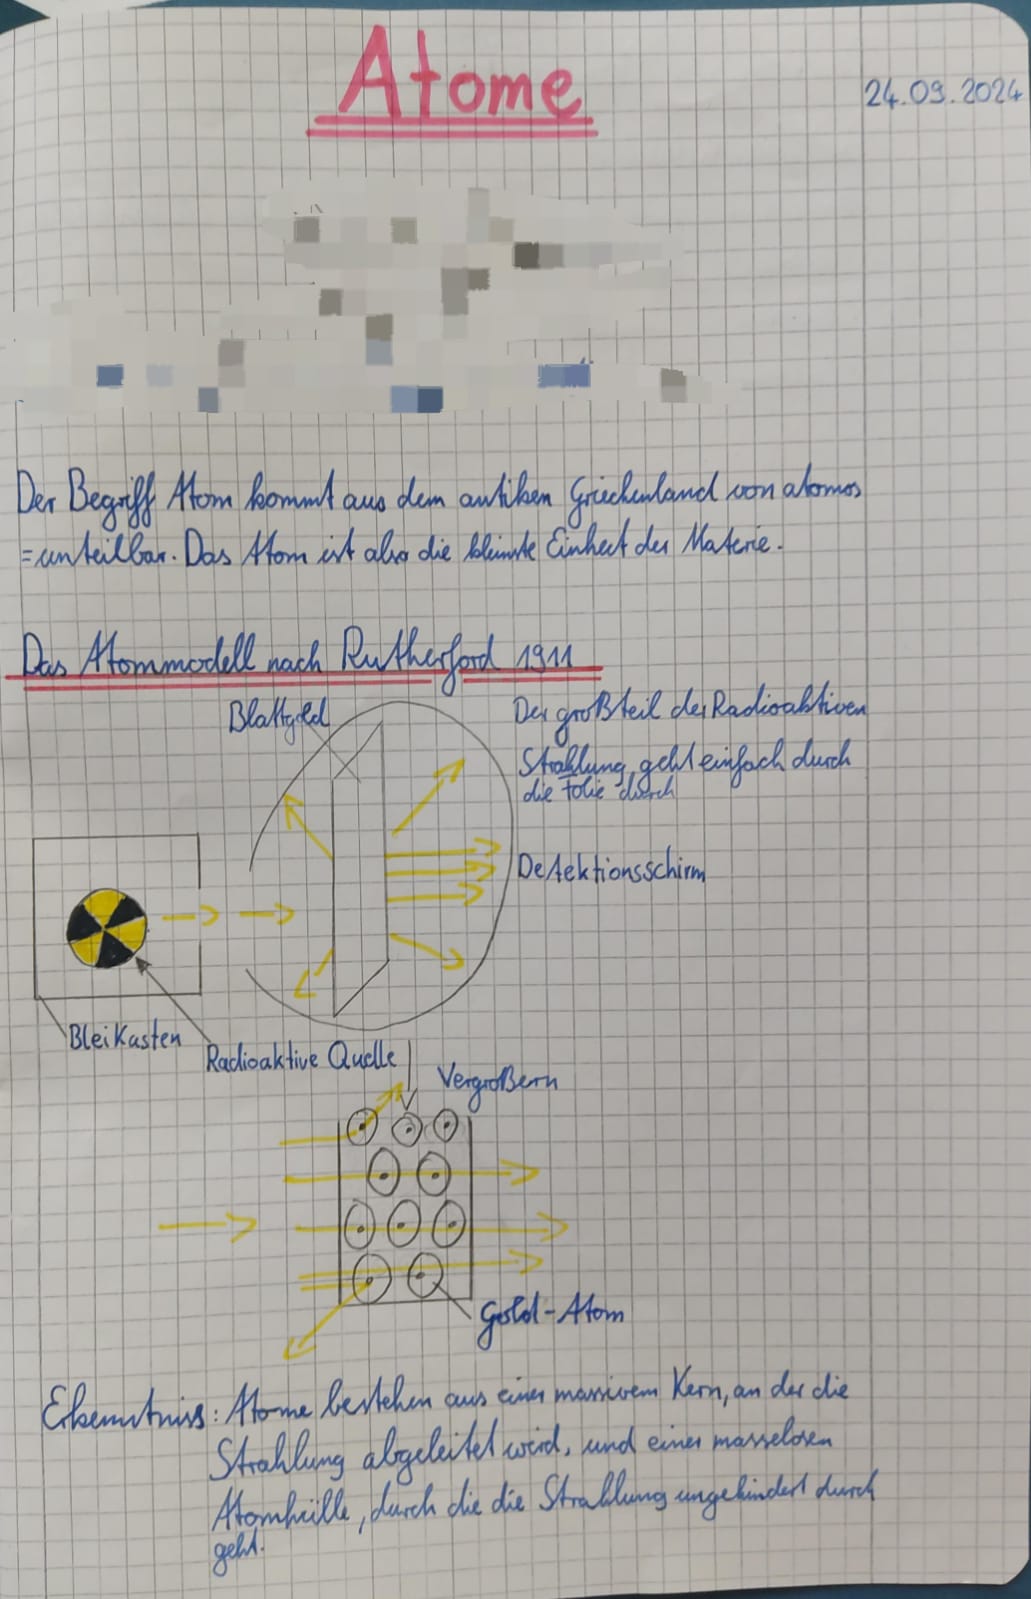 Atome
24.09.2024
Der Begriff Atom kommt aus dem antiken Griechenland von atomos
=unteilbar. Das Atom ist also die kleinste Einheit der Materie.
Das Atommodell nach Rutherford 1911
Blattgold
Der großteil der Radioaktiven
Strahlung geht einfach durch
die Folie durch
Detektionsschirm
Bleikasten
Radioaktive Quelle
Vergroßern
Gold-Atom
Erkenntniss: Atome bestehen aus einer massivem Kern, an der die
Strahlung abgeleitet wird, und einer masselosen
Atomhülle, durch die die Strahlung ungehindert durch
geht.